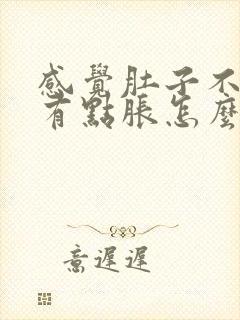 感覺肚子不
有點脹怎麼
意遲遲